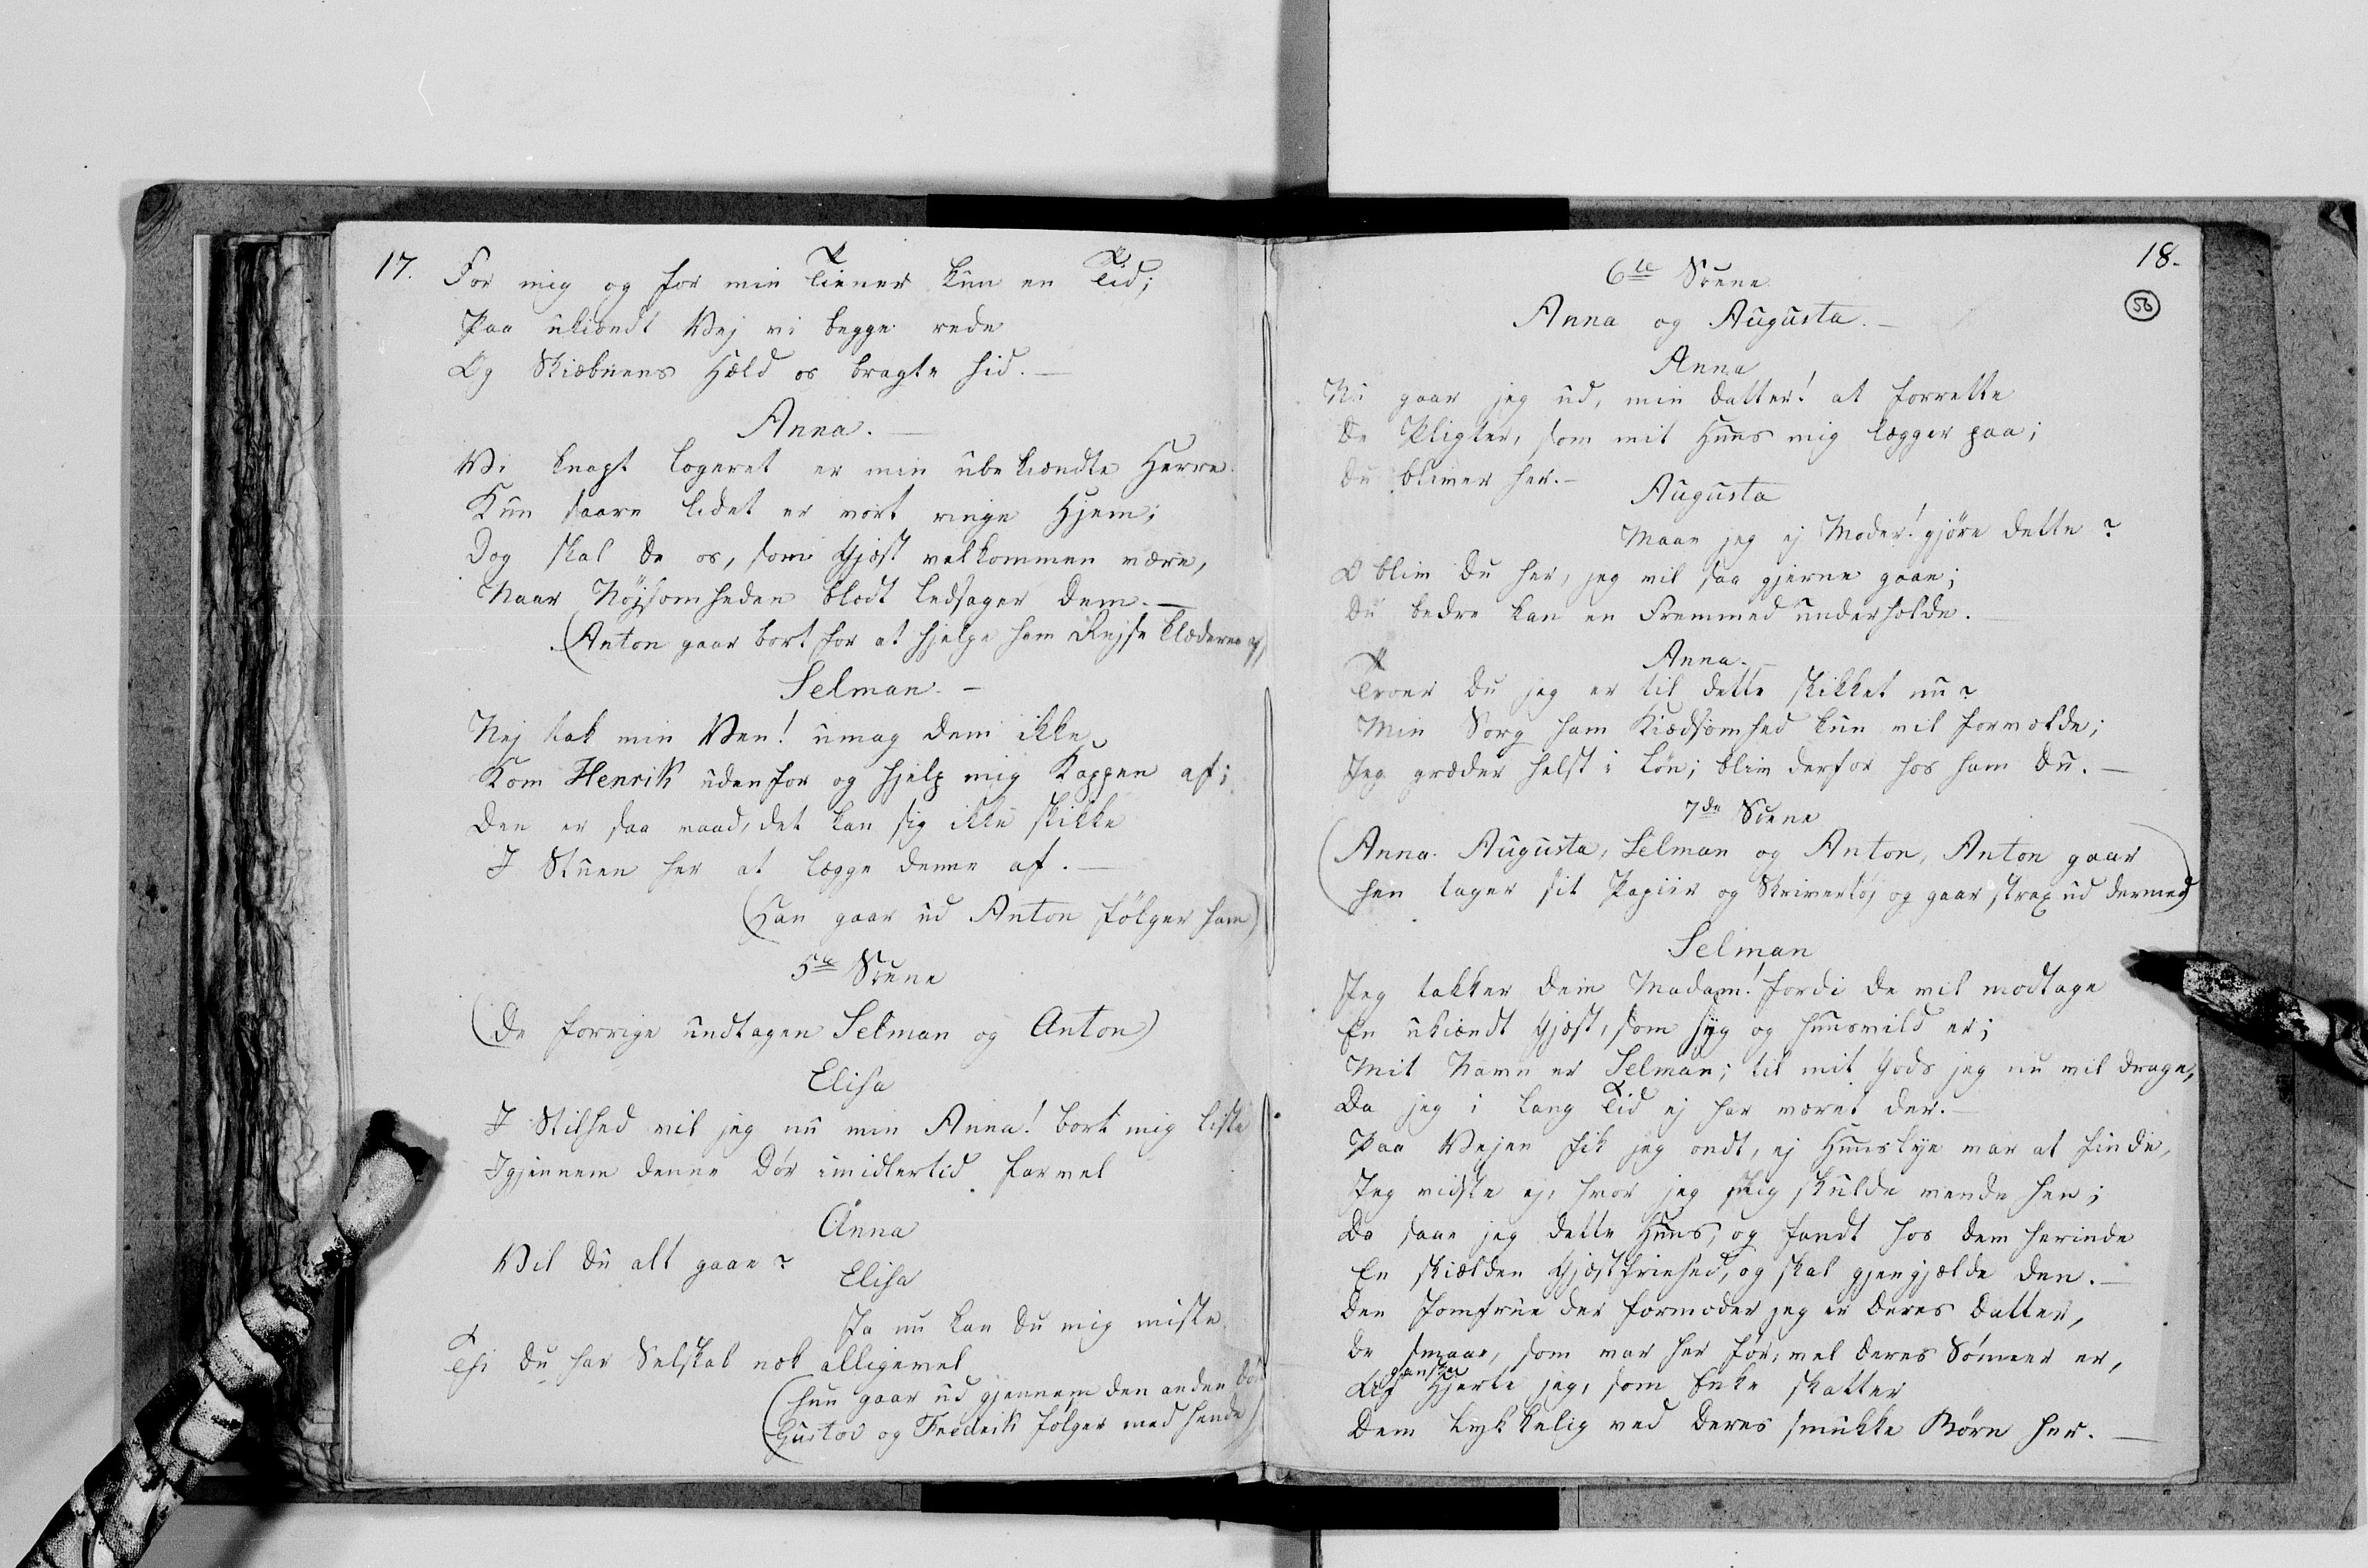 17.
For mig og for min Tiener kun en Tid;
Paa ukiendt Vej vi begge rede
Og Skiæbnens Hæld os bragte hid. —
Anna. —
Vi knapt logeret er min ubekiendte Herre
Kun saare lidet er vort ringe Hjem;
Dog skal De os, som Gjæst velkommen være,
Naar Nøjsomheden blodt ledsager Dem. —
(Anton gaar bort for at hjelpe ham Rejse klæderne af)
Selman. —
Nej tak min Ven! umag Dem ikke
Kom Henrik udenfor og hjelp mig Kappen af;
Den er saa vaad, det kan sig ikke skikke
I Stuen her at lægge denne af. —
(Han gaar ud Anton følger ham)
5te Scene
(De forrige undtagen Selman og Anton)
Elisa
I Stilhed vil jeg nu min Anna! bort mig liste
Igjennem denne Dør imidlertid farvel
Anna
Vil du alt gaae?
Elisa
Ja nu kan du mig miste
Thi du har Selskab nok alligevel
(hun gaar ud gjennem den anden Dør
Gustav og Fredrik følger med hende)
18.
56
6te Scene
Anna og Augusta. —
Anna
Nu gaar jeg ud, min Datter! at forrette
De Pligter, som mit Huus mig lægger paa;
Du bliver her. —
Augusta
Maae jeg ej Moder! gjöre dette?
O bliv du her, jeg vil saa gjerne gaae;
Du bedre kan en Fremmed underholde. —
Anna. —
Troer du jeg er til dette skikket nu?
Min Sorg ham Kiedsomhed kun vil forvolde;
Jeg græder helst i Løn; bliv derfor hos ham du. —
7de Scene
(Anna. Augusta, Selman og Anton, Anton gaar
hen tager sit Papiir og Skrivertøj og gaar strax ud dermed)
Selman
Jeg takker Dem Madam! fordi De vil modtage
En ukiendt Gjæst, som syg og huusvild er;
Mit Navn er Selman; til mit Gods jeg nu vil drage,
Da jeg i lang Tid ej har været der. —
Paa Vejen fik jeg ondt, ej Huuslye var at finde,
Jeg vidste ej, hvor jeg mig skulde vende hen;
Da saae jeg dette Huus, og fandt hos Dem herinde
En skiælden Gjæstfriehed, og skal gjengjælde den. —
Den Jomfrue der formoder jeg er Deres Datter,
De smaae, som var her før, vel Deres Sønner er,
Af ganske Hjerte jeg, som Enke skatter
Dem lykkelig ved Deres smukke Børn her. —